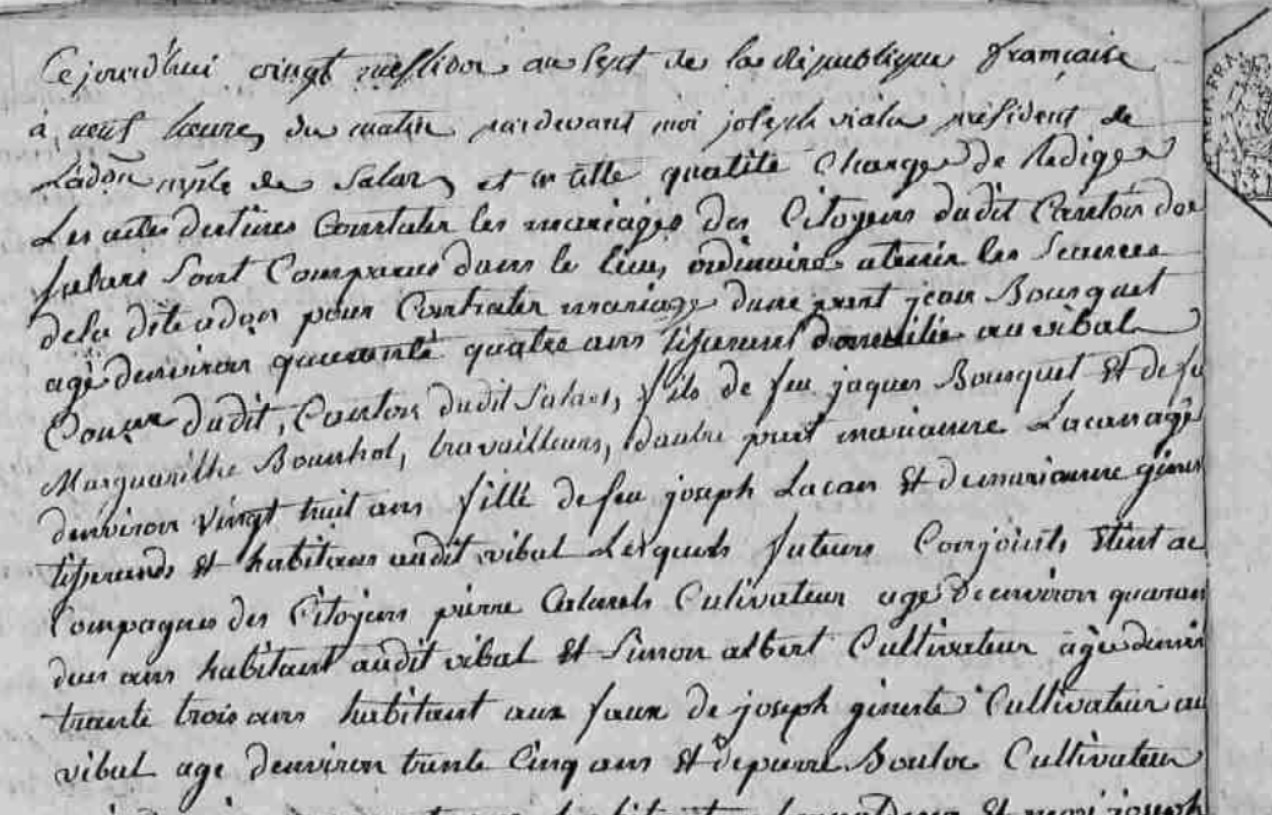 Cejourd'hui vingt messidor an sept de la république française
à neuf heures du matin pardevant moi joseph viala président de
Ladôn mple de Salars et en cette qualité Chargé de Rediger
Les actes destinés Constater les mariages des Citoyens dudit Canton de
Salars Sont Comparus dans le lieu ordinaire atenir les Seances
dela dite adôn pour Contrater mariage dune part jean Bousquet
agé denviron quarante quatre ans tisserand domicilié au vibal
dudit Canton dudit Salars, fils de feu jaques Bousquet et de fu
Marguarithe Bounhol, travailleurs, dautre part marianne Lacan agé
denviron vingt huit ans fille de feu joseph Lacan et demarianne gines
tisserands et habitans audit vibal Lesquels futurs Conjoints etint ac
Compagnes des Citoyens pierre Cultivateur agé Denviron quaran
deux ans habitant audit vibal et Simon albert Cultivateur agé denvir
trante trois ans habitant aux faux de joseph gineste Cultivateur au
vibal age denviron trente Cinq ans et depierre Bouloc Cultivateur
et moi joseph